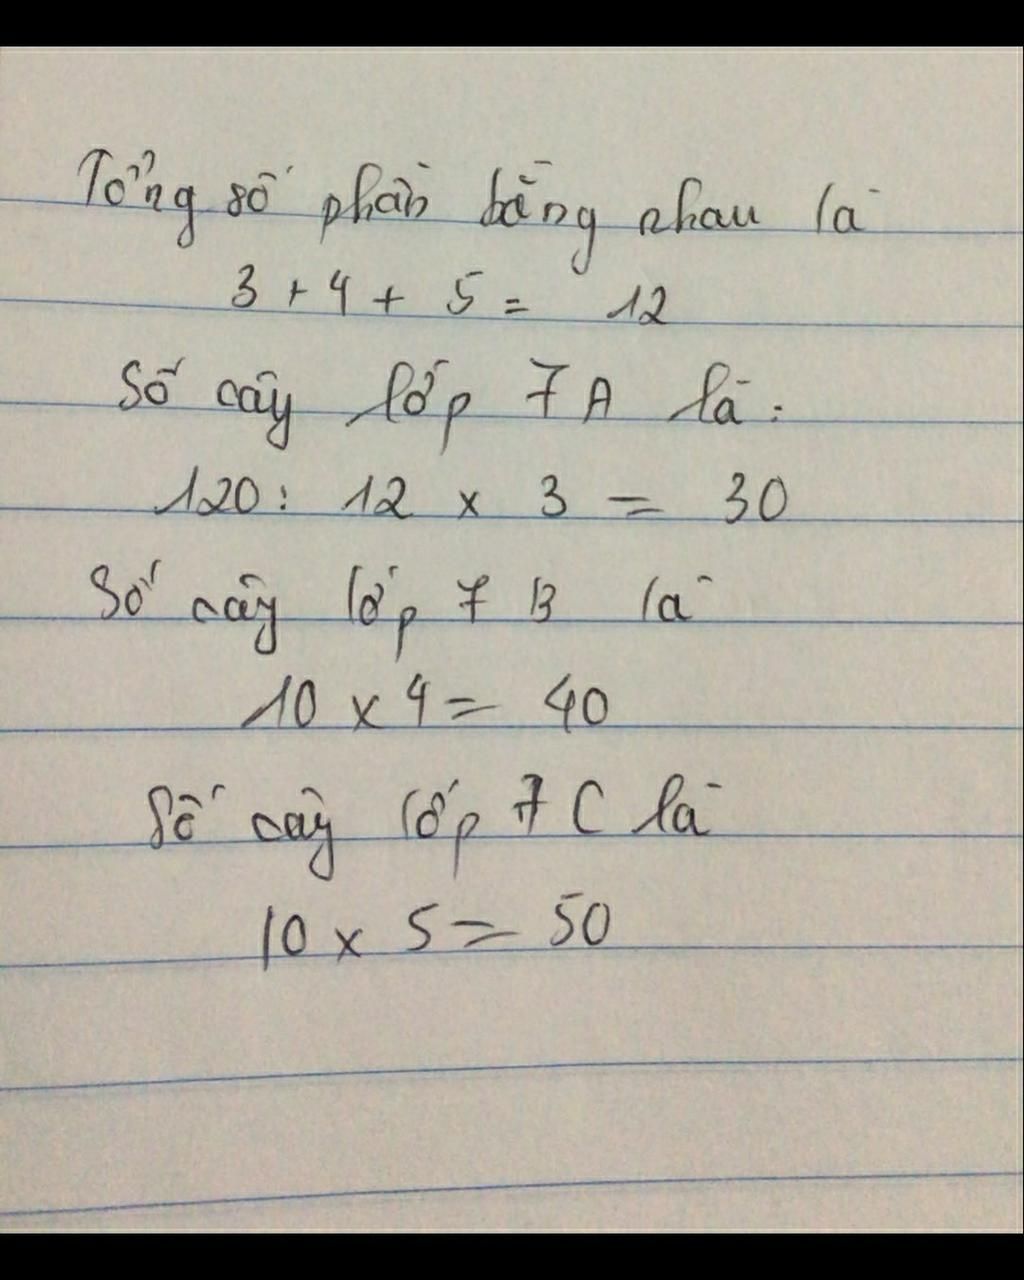 Tổng số phần bằng nhau là
3 + 4 + 5 = 12
Số cây lớp 7A là:
120 : 12 x 3 = 30
Số cây lớp 7B là
10 x 4 = 40
Số cây lớp 7C là
10 x 5 = 50